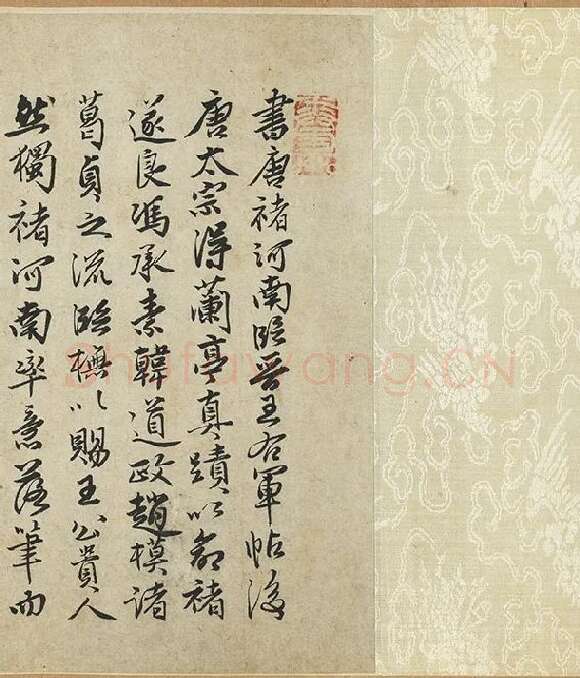 書唐褚河南臨晉王右軍帖後
唐太宗得蘭亭真蹟以命褚
遂良馮承素韓道政趙模諸
葛貞之流臨橅以賜王公貴人
然獨褚河南率意落筆而
Shufawang.CN